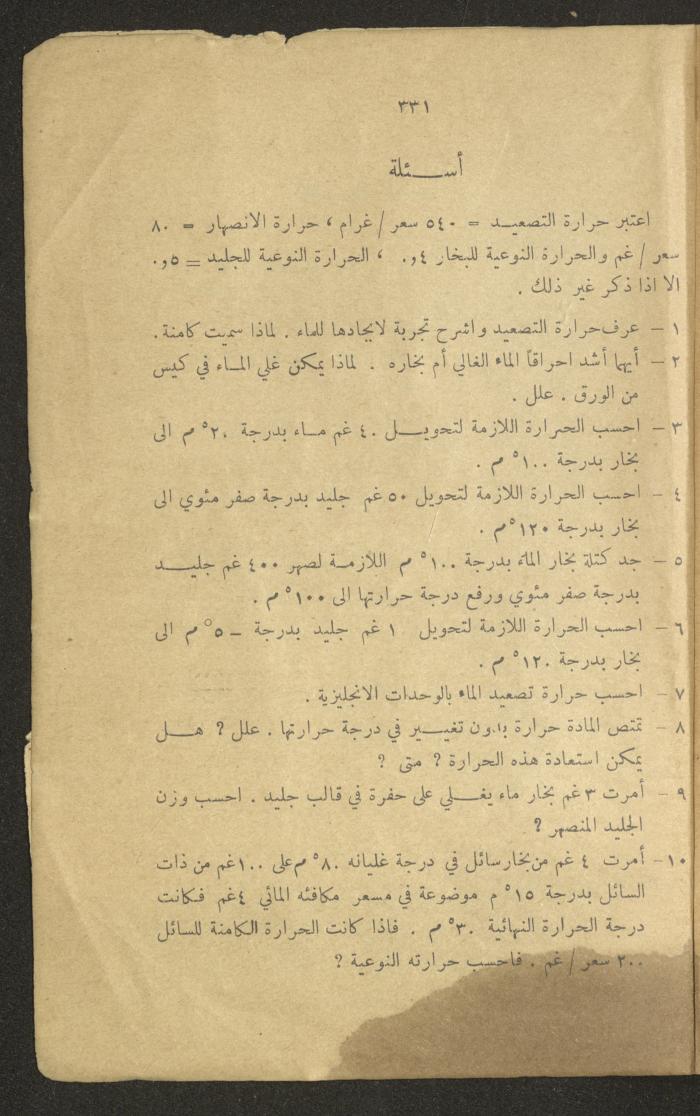 ٣٣١
أسئلة
اعتبر حرارة التصعيد = ٥٤٠ سعر / غرام ، حرارة الانصهار = ٨٠
سعر / غم والحرارة النوعية للبخار ٤ر٠ ، الحرارة النوعية للجليد = ٥ر٠
الا اذا ذكر غير ذلك .
١ - عرف حرارة التصعيد واشرح تجربة لايجادها للماء . لماذا سميت كامنة .
٢ - أيهما أشد احراقاً الماء الغالي أم بخاره . لماذا يمكن غلي الماء في كيس
من الورق . علل .
٣ - احسب الحرارة اللازمة لتحويل ٤٠ غم ماء بدرجة ٢٠° م الى
بخار بدرجة ١٠٠° م .
٤ - احسب الحرارة اللازمة لتحويل ٥٠ غم جليد بدرجة صفر مئوي الى
بخار بدرجة ١٢٠° م .
٥ - جد كتلة بخار الماء بدرجة ١٠٠° م اللازمة لصهر ٤٠٠ غم جليد
بدرجة صفر مئوي ورفع درجة حرارتها الى ١٠٠° م .
٦ - احسب الحرارة اللازمة لتحويل ١ غم جليد بدرجة - ٥° م الى
بخار بدرجة ١٢٠° م .
٧ - احسب حرارة تصعيد الماء بالوحدات الانجليزية .
٨ - تمتص المادة حرارة بدون تغيير في درجة حرارتها . علل ؟ هل
يمكن استعادة هذه الحرارة ؟ متى ؟
٩ - أمرت ٣ غم بخار ماء يغلي على حفرة في قالب جليد . احسب وزن
الجليد المنصهر ؟
١٠ - أمرت ٤ غم من بخار سائل في درجة غليانه ٨٠° م على ١٠٠ غم من ذات
السائل بدرجة ١٥° م موضوعة في مسعر مكافئه المائي ٤ غم فكانت
درجة الحرارة النهائية ٣٠° م . فاذا كانت الحرارة الكامنة للسائل
٢٠٠ سعر / غم . فاحسب حرارته النوعية ؟